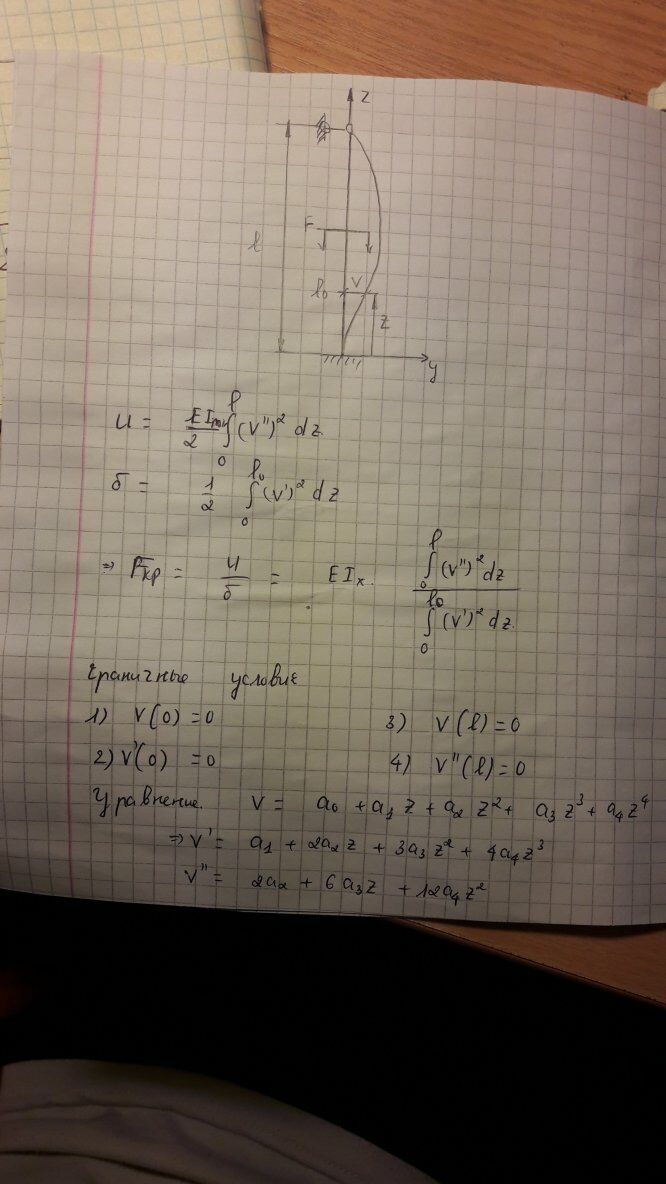 z
F
l
V
l₀
z
y
U = EI_min/2 ∫₀^l (V'')² dz.
δ = 1/2 ∫₀^l₀ (V')² dz
⇒ Fкр = U/δ = EIₓ. ∫₀^l (V'')² dz / ∫₀^l₀ (V')² dz.
Граничные условие
1) V(0) = 0 3) V(l) = 0
2) V'(0) = 0 4) V''(l) = 0
Уравнение. V = a₀ + a₁ z + a₂ z² + a₃ z³ + a₄ z⁴
⇒ V' = a₁ + 2a₂ z + 3a₃ z² + 4a₄ z³
V'' = 2a₂ + 6a₃z + 12a₄z²